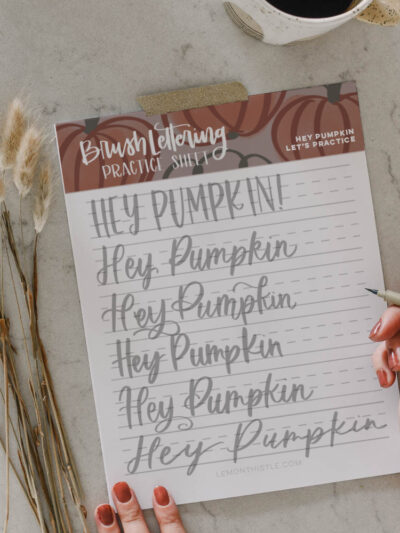 Brush Lettering
PRACTICE SHEET
HEY PUMPKIN
LET'S PRACTICE
HEY PUMPKIN!
Hey Pumpkin
Hey Pumpkin
Hey Pumpkin
Hey Pumpkin
Hey Pumpkin
LEMONTHISTLE.COM